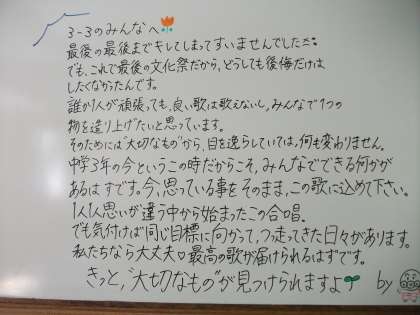 3-3のみんなへ
最後の最後までキレてしまってすいませんでした
でも、これで最後の文化祭だから、どうしても後悔だけは
したくなかったんです。
誰か1人が頑張っても、良い歌は歌えないし、みんなで1つの
物を造り上げたいと思っています。
そのためには"大切なもの"から、目を逸らしていては、何も変わりません。
中学3年の今というこの時だからこそ、みんなでできる何かが
あるはずです。今、思っている事をそのまま、この歌に込めて下さい。
1人1人思いが違う中から始まったこの合唱。
でも気付けば同じ目標に向かって、つっ走ってきた日々があります。
私たちなら大丈夫♡最高の歌が届けられるはずです。
きっと、"大切なもの"が見つけられますよ
by